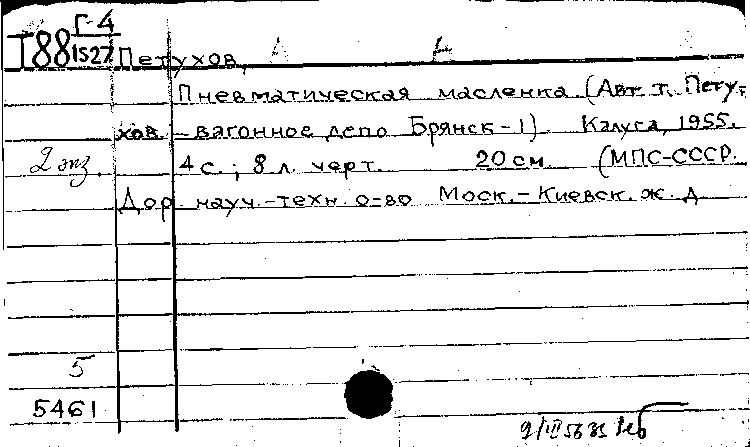 Г-4
Т88 1527 Петухов, А
Пневматическая масленка. (Авт. т. Пету-
хов - вагонное депо Брянск-1). Калуга, 1955.
2 экз. 4 с.; 8 л. черт. 20 см (МПС-СССР.
Дор. науч.-техн. о-во Моск.-Киевск. ж. д
5
5461
9/III 56